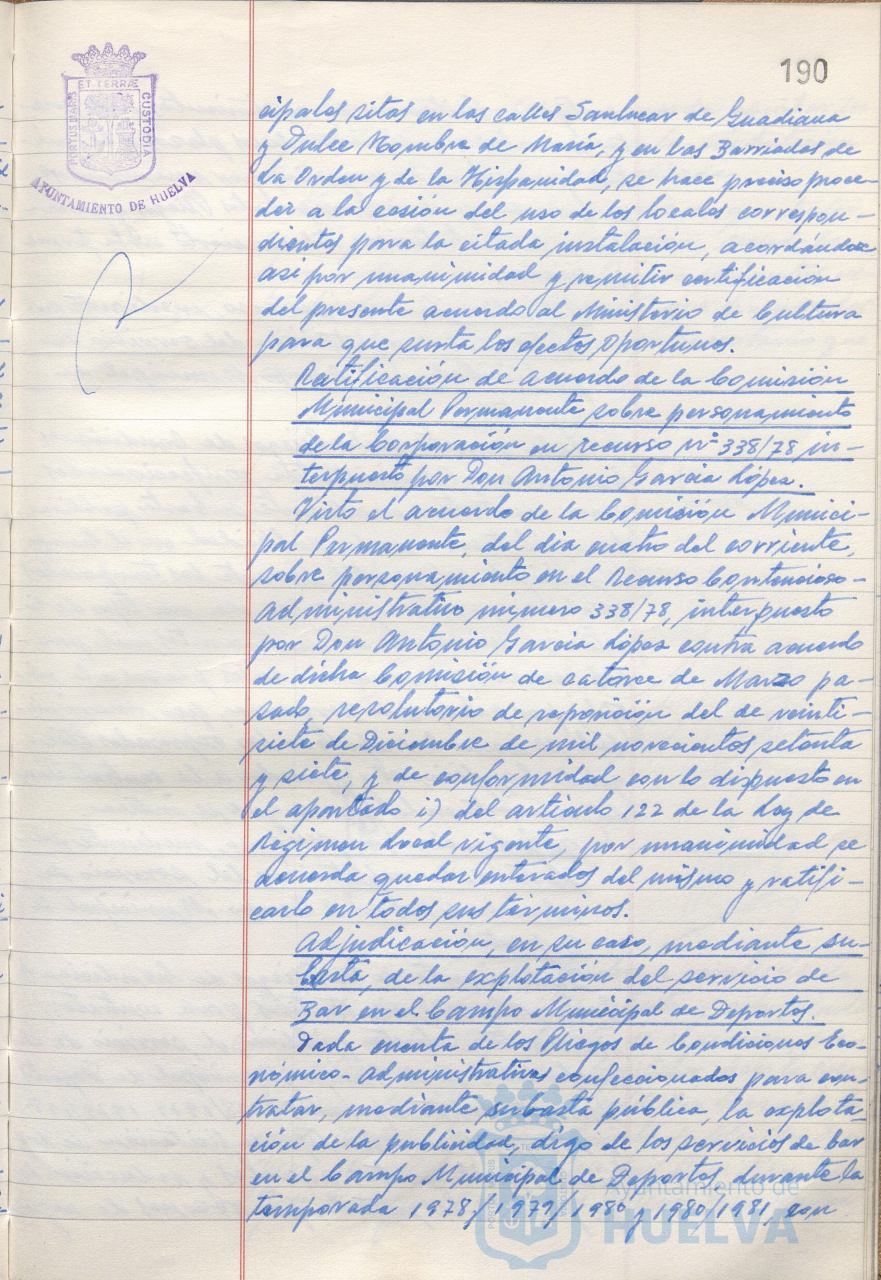 190
ET TERRÆ
PORTUS MARIS
CUSTODIA
AYUNTAMIENTO DE HUELVA
cipales sitos en las calles Sanlucar de Guadiana
y Dulce Nombre de María, y en las Barriadas de
La Orden y de la Hispanidad, se hace preciso proce-
der a la cesión del uso de los locales correspon-
dientes para la citada instalación, acordándose
así por unanimidad y remitir certificación
del presente acuerdo al Ministerio de Cultura
para que surta los efectos oportunos.
Ratificación de acuerdo de la Comisión
Municipal Permanente sobre personamiento
de la Corporación en recurso nº 338/78 in-
terpuesto por Don Antonio Garcia López.
Visto el acuerdo de la Comisión Munici-
pal Permanente, del dia cuatro del corriente,
sobre personamiento en el Recurso Contencioso-
Administrativo número 338/78, interpuesto
por Don Antonio Garcia López contra acuerdo
de dicha Comisión de catorce de Marzo pa-
sado, resolutorio de reposición del de veinti-
siete de Diciembre de mil novecientos setenta
y siete, y de conformidad con lo dispuesto en
el apartado i) del articulo 122 de la Ley de
Régimen Local vigente, por unanimidad se
acuerda quedar enterados del mismo y ratifi-
carlo en todos sus términos.
Adjudicación, en su caso, mediante su-
basta, de la explotación del servicio de
Bar en el Campo Municipal de Deportes.
Dada cuenta de los Pliegos de Condiciones Eco-
nómico-Administrativas confeccionados para con-
tratar, mediante subasta pública, la explota-
ción de la publicidad, digo de los servicios de bar
en el Campo Municipal de Deportes durante la
temporada 1978/1979/1980 y 1980/1981, con
Ayuntamiento de
HUELVA